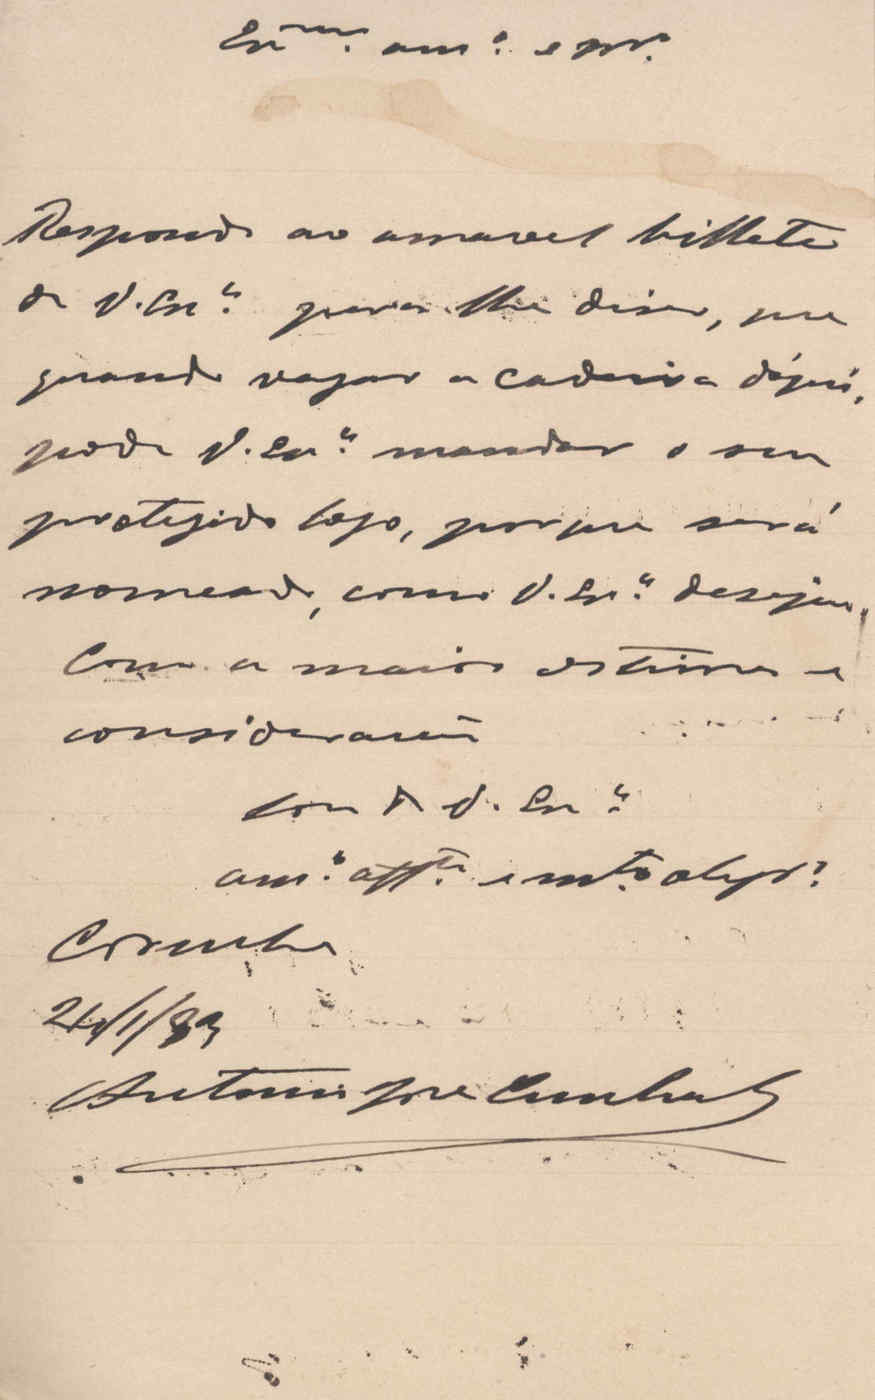 Ex.mo am.o e sr.
Respondo ao amavel bilhete
de V. Ex.a para lhe diser, que
quando vagar a cadeira d'aqui,
pode V. Ex.a mandar o seu
protegido logo, porque será
nomeado, como V. Ex.a deseja.
Com a maior estima e
consideração
Sou de V. Ex.a
am.o aff.to e m.to obg.o
Corunha
24/1/89
Antonio José Cunha